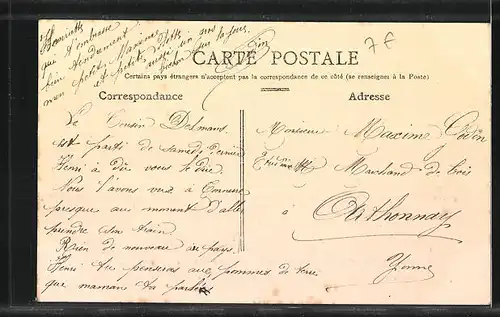 Henriette
que t'embrasse
bien tendrement
mon petit Maxime
et petite
aussi un gros
sur la joue.
7 €
CARTE POSTALE
Certains pays étrangers n'acceptent pas la correspondance de ce côté (se renseigner à la Poste)
Correspondance
Adresse
Le Cousin Delmans
est parti de samedi dernier
Henri a dû vous le dire
Nous l'avons vu à
presque au moment d'aller
prendre son train
Rien de nouveau au pays.
Henri tu penseras aux pommes de terre
que maman t'a
Monsieur Maxime
Marchand de bois
à
Arthonnay
Yonne